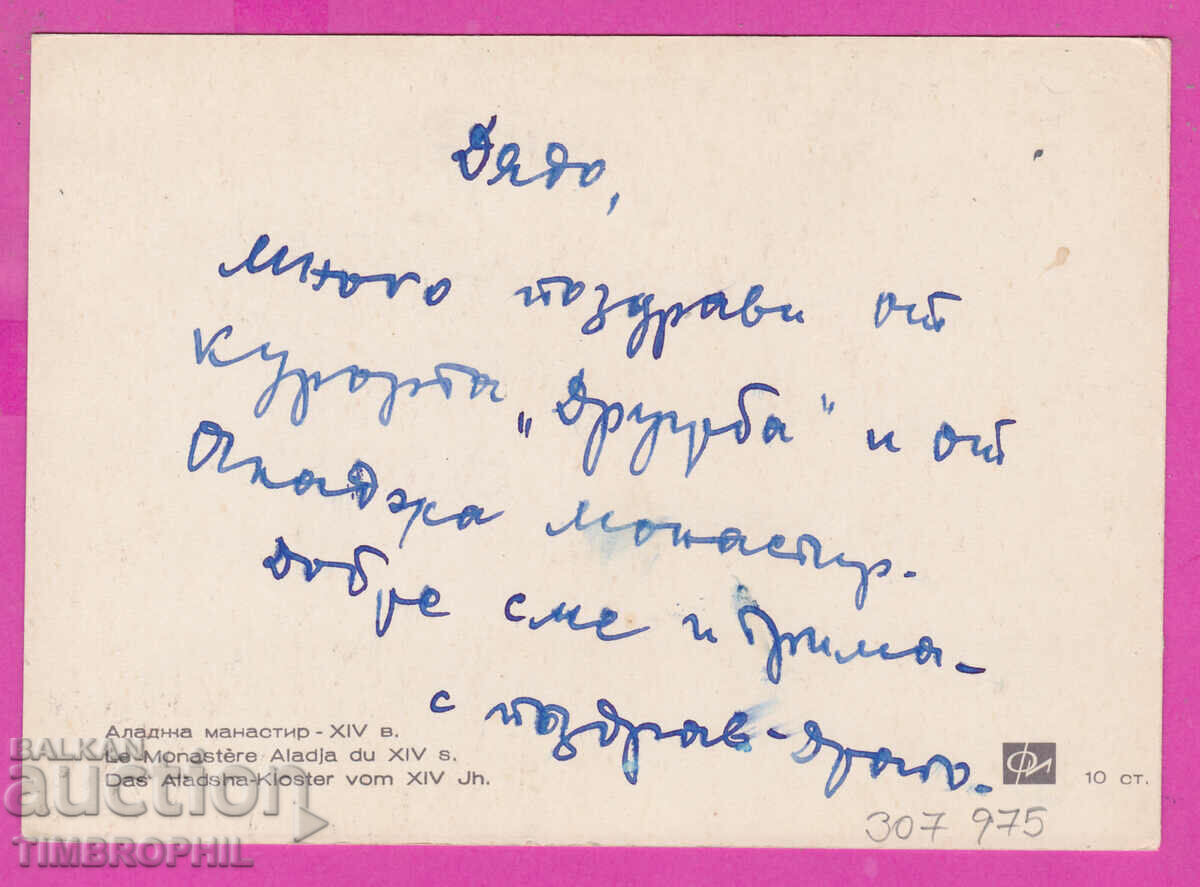 Дядо,
много поздрави от
курорта „Дружба" и от
Аладжа монастир.
Добре сме и
с поздрав -
Аладжа манастир - XIV в.
Le Monastère Aladja du XIV s.
Das Aladsha-Kloster vom XIV Jh.
10 ст.
307 975
BALKAN
auction
TIMBROPHIL